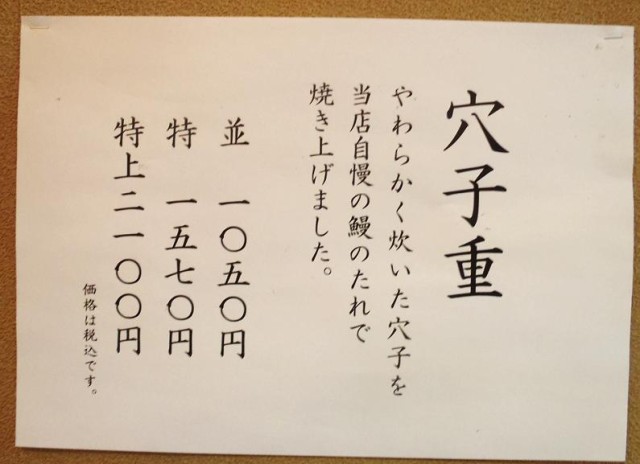 穴子重
やわらかく炊いた穴子を
当店自慢の鰻のたれで
焼き上げました。
並 一〇五〇円
特 一五七〇円
特上二一〇〇円
価格は税込です。